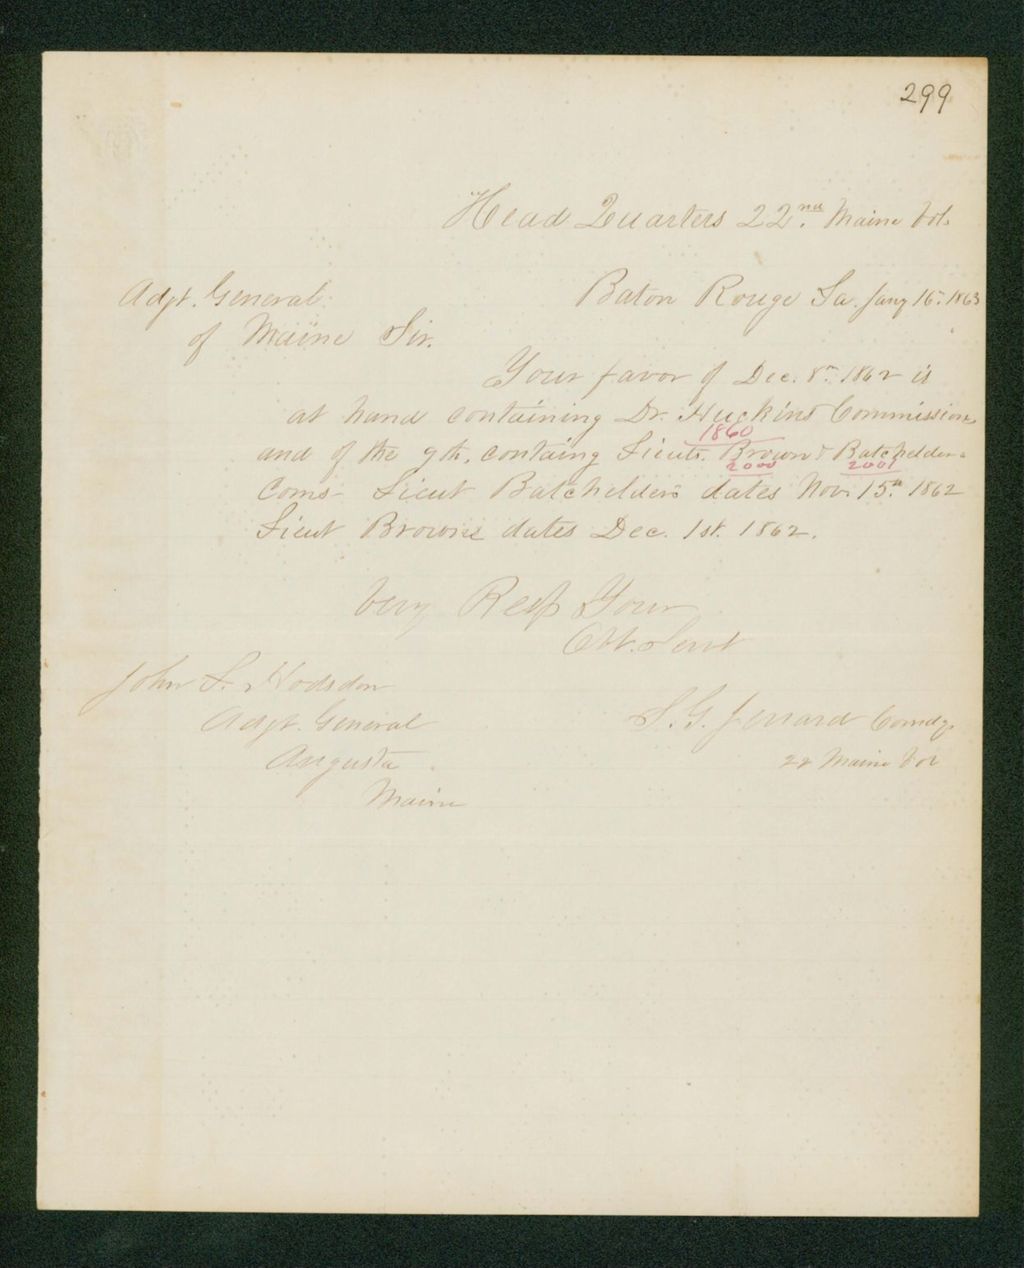 299
Head Quarters 22nd. Maine Vol.
Adjt. General
Baton Rouge La. Jany 16th. 1863
of Maine Sir.
Your favor of Dec. 8th. 1862 is
at hand containing Dr. Huckins Commission
1860
and of the 9th. containg Lieuts. Brown & Batchelders
2000 2001
Coms- Lieut Batchelders dates Nov. 15th 1862
Lieut Browns dates Dec. 1st. 1862.
Very Resp Your
Obt. Servt
John L. Hodsdon
Adjt. General
S. G. Jerrard Comdg.
Augusta
22 Maine Vol
Maine